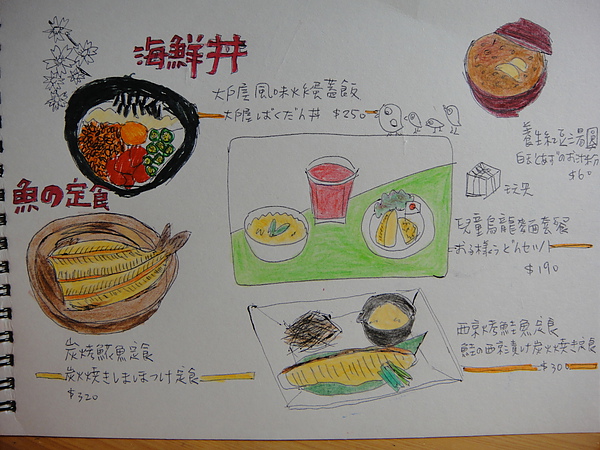 海鮮丼
大戶屋風味炸蛋蓋飯
大戸屋ばくだん丼 $250
養生紅豆湯圓
白玉とあずきのお汁粉
$60
魚の定食
玩具
兒童烏龍麵套餐
お子様うどんセット
$190
炭烤鯱魚定食
炭火焼きしまほっけ定食
$320
西京烤鮭魚定食
鮭の西京漬け炭火焼き定食